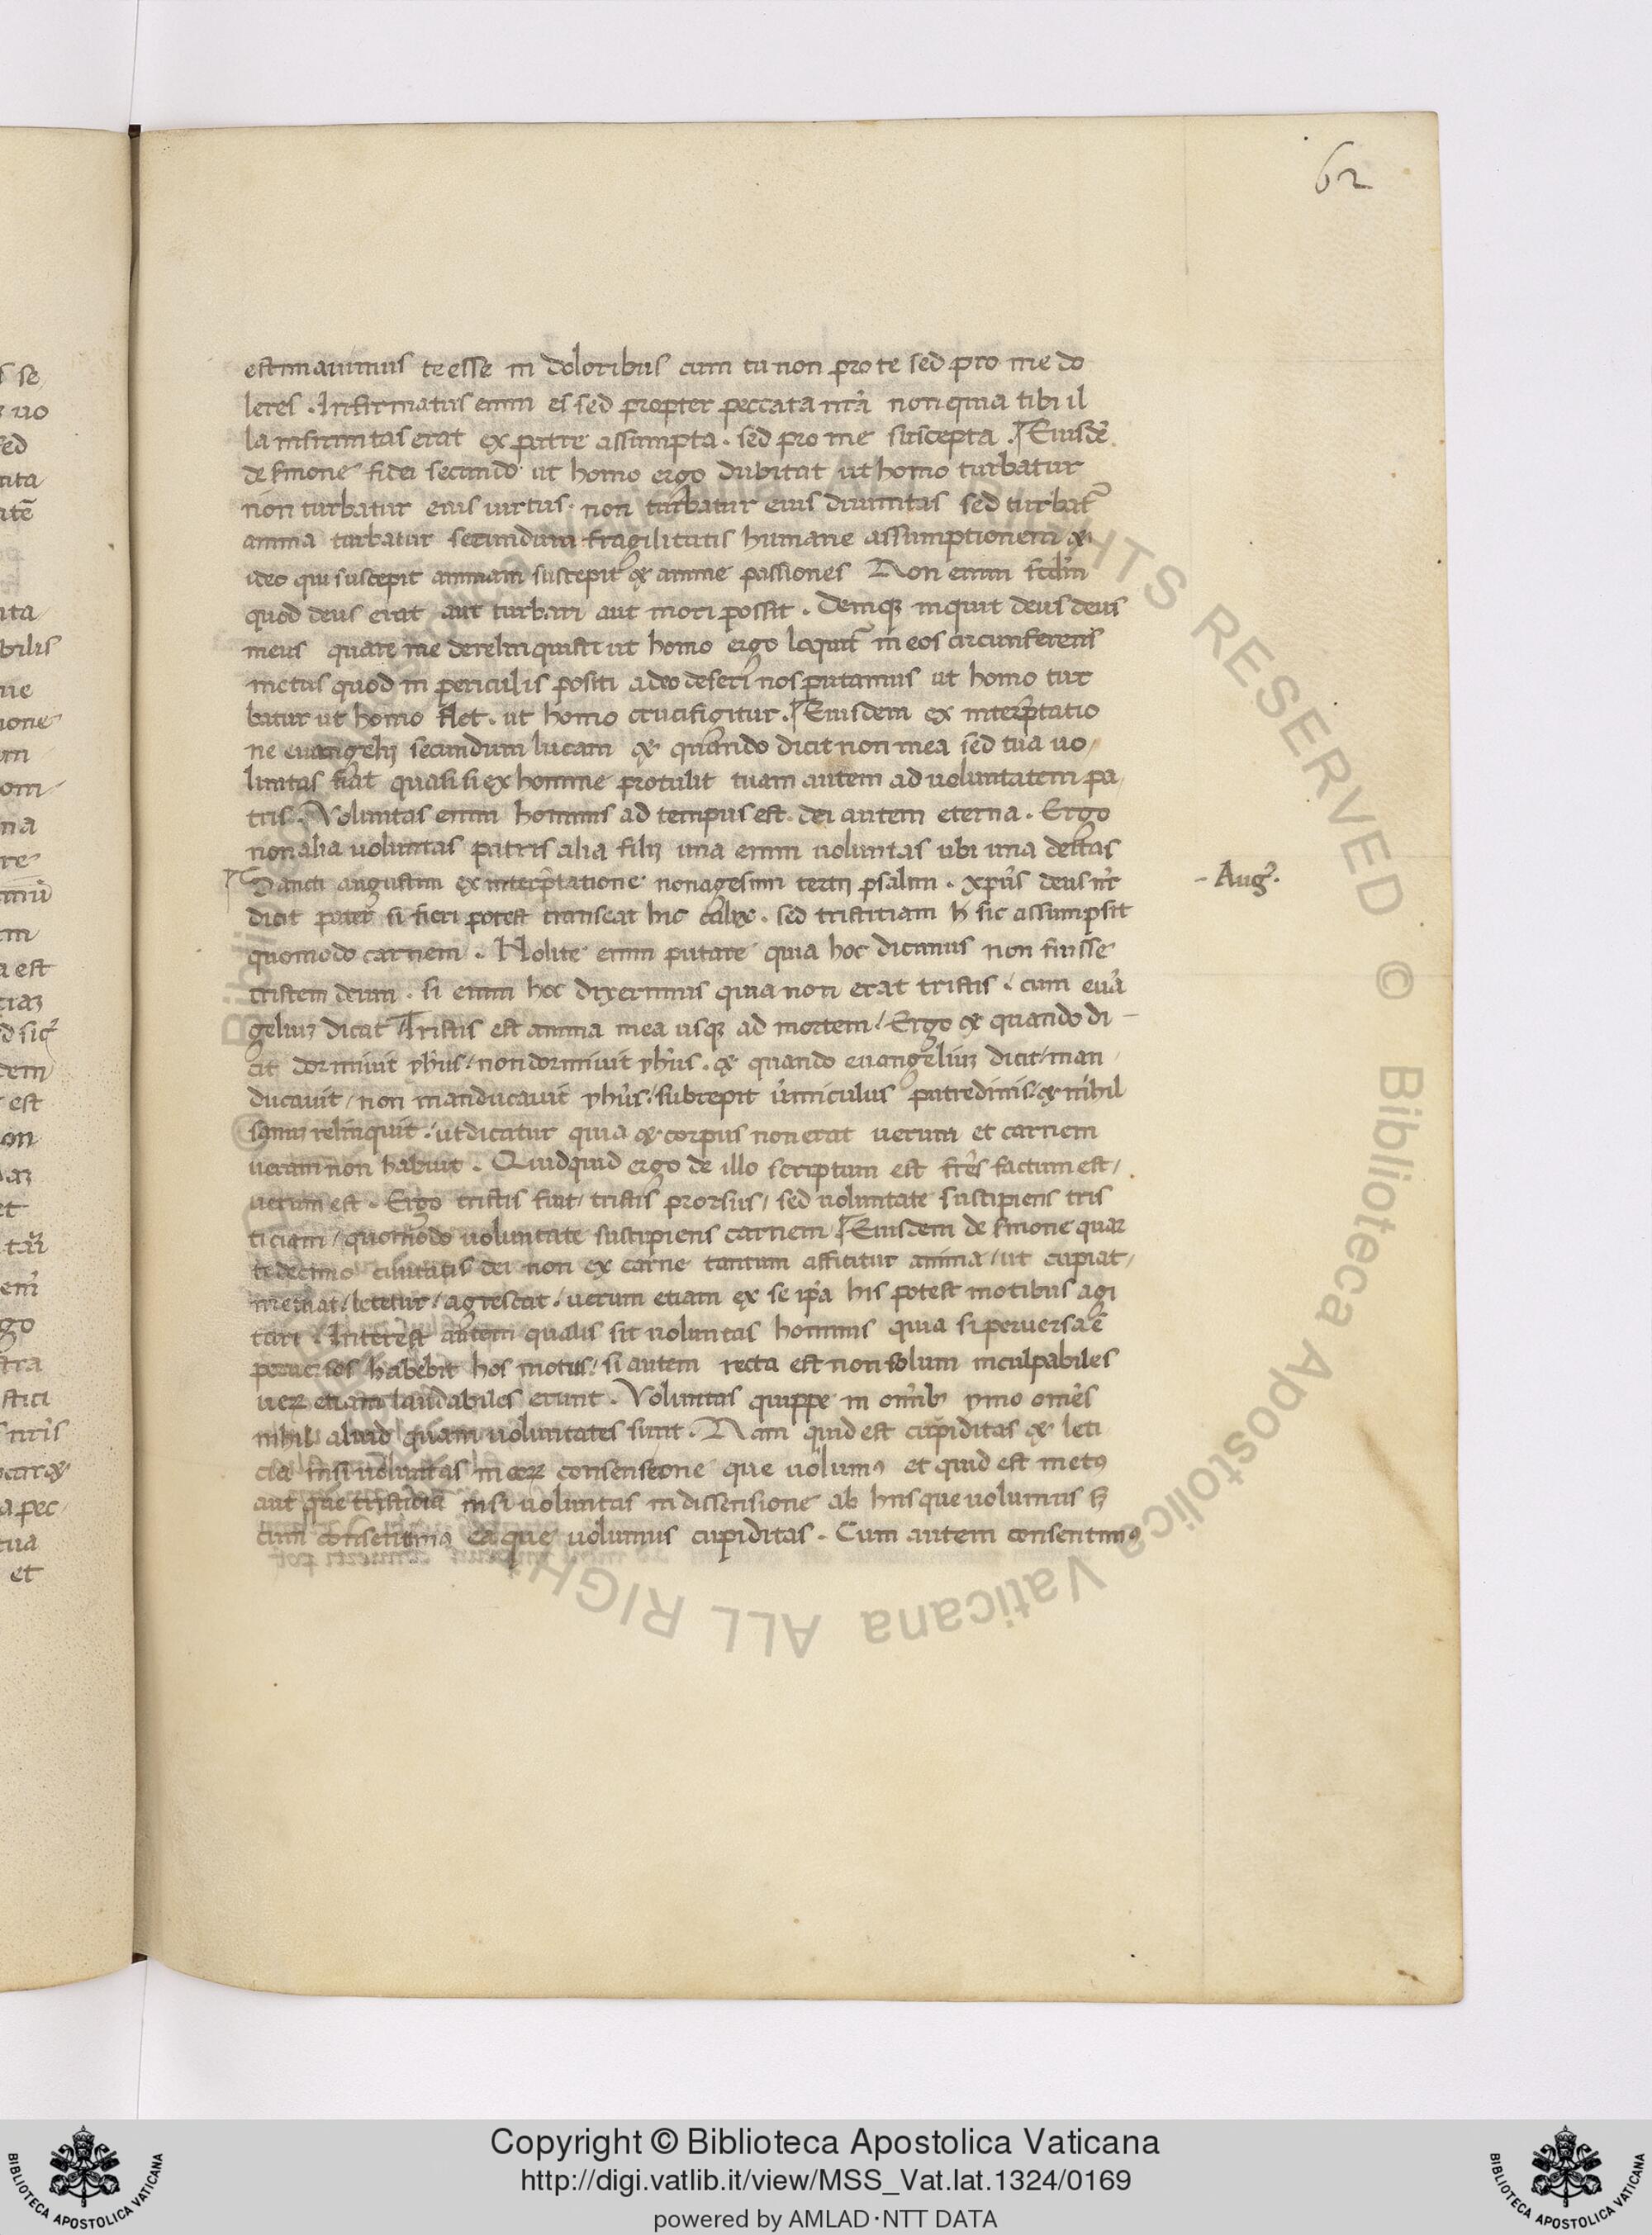 62
estimavimus te esse in doloribus cum tu non pro te sed pro me do
leres . Infirmatus enim es sed propter peccata nr̃a non quia tibi il
la infirmitas erat ex patre assumpta . sed pro me suscepta . ¶ Eiusdẽ
de s̃mone fidei secundo ut homo ergo dubitat ut homo turbatur
non turbatur eius uirtus . non turbatur eius diuinitas sed turbat᷑
anima turbatur secundum fragilitatis humane assumptionem &
ideo qui suscepit animam suscepit & anime passiones Non enim scd̃m
quod deus erat aut turbari aut mori possit . Deniqꝫ inquit deus deus
meus quare me dereliquisti ut homo ergo loquit᷑ in eos circunferens
metus quod in periculis positi a deo deseri nos putamus ut homo tur
batur ut homo flet . ut homo crucifigitur . ¶ Eiusdem ex interp̃tatio
ne euangelij secundum lucam & quando dicit non mea sed tua uo/
luntas fiat quasi si ex homine protulit tuam autem ad uoluntatem pa/
tris . Voluntas enim hominis ad tempus est . dei autem eterna . Ergo
non alia uoluntas patris alia filij una enim uoluntas ubi una deitas
¶ Sancti augustini ex interp̃tatione nonagesimi tertij psalmi . xp̃us deus nr̃
- Aug᷑.
dicit pater si fieri potest transeat hic calix . sed tristitiam h̃ sic assumpsit
quomodo carnem . Nolite enim putare quia hoc dicimus non fuisse
tristem deum . si enim hoc dixerimus quia non erat tristis / cum euã
geliuꝫ dicat Tristis est anima mea usqꝫ ad mortem / Ergo & quando di -
cit dormiuit yh̃us / non dormiuit yh̃us . & quando euangeliuꝫ dicit / man /
ducauit / non manducauit yh̃us / subrepit ũmiculus putredinis / & nihil
sanuꝫ relinquit / ut dicatur quia & corpus non erat uerum et carnem
ueram non habuit . Quidquid ergo de illo scriptum est fr̃es factum est /
uerum est . Ergo tristis fuit / tristis prorsus / sed uoluntate suscipiens tris
ticiam / quomodo uoluntate suscipiens carnem ¶ Eiusdem de s̃mone quar
to decimo ciuitatis dei non ex carne tantum afficitur anima / ut cupiat /
metuat / letetur / agrescat / uerum etiam ex se ip̃a his potest motibus agi
tari / Interest autem qualis sit uoluntas hominis quia si peruersa ẽ
peruersos habebit hos motus / si autem recta est non solum inculpabiles
ueꝝ etiam laudabiles erunt . Voluntas quippe in om̃ib; ymo om̃es
nihil aliud quam uoluntates sunt . Nam quid est cupiditas & leti
cia nisi uoluntas in eoꝝ consensione que uolumꝰ et quid est metꝰ
aut que tristicia nisi uoluntas in dissensione ab hiis que uolumus sꝫ
cum consentimꝰ ea que uolumus cupiditas . Cum autem consentimꝰ
Copyright © Biblioteca Apostolica Vaticana
http://digi.vatlib.it/view/MSS_Vat.lat.1324/0169
powered by AMLAD·NTT DATA
BIBLIOTECA APOSTOLICA VATICANA
BIBLIOTECA APOSTOLICA VATICANA
© Biblioteca Apostolica Vaticana ALL RIGHTS RESERVED